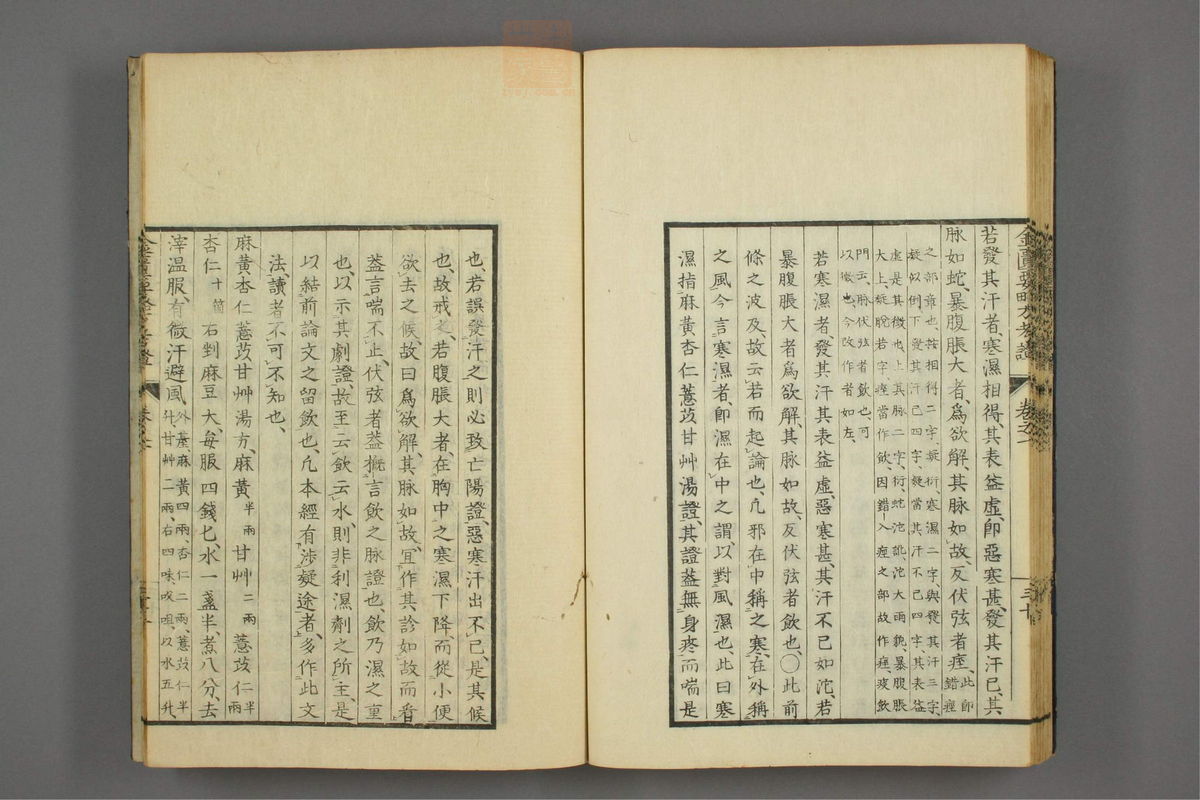 若發其汗者、寒濕相得、其表益虛、卽惡寒甚、發其汗已、其
脉如蛇、暴腹脹大者、爲欲解、其脉如故、反伏弦者痙、此卽錯痙
之部章也、按相得二字、疑衍、寒濕二字、與發其汗三字
疑似倒下、發其汗已四字、疑當其汗不已四字、其表益
虛是其徵也、上其脉二字、衍、蛇沱訛、沱大雨貌、暴腹脹
大上、疑脫若字、痙當作飮、因錯入痙之部故作痙、痰飮
門云、脉伏弦者飮也、可
以徵也、今改作者如左、
若寒濕者、發其汗、其表益虛、惡寒甚、其汗不已如沱、若
暴腹脹大者爲欲解、其脉如故、反伏弦者飮也、〇此前
條之波及、故云若而起論也、凡邪在中稱之寒、在外稱
之風、今言寒濕者、卽濕在中之謂、以對風濕也、此曰寒
濕、指麻黃杏仁薏苡甘艸湯證、其證蓋無身疼而喘是
也、若誤發汗之則必致亡陽證、惡寒汗出不已、是其候
也、故戒之、若腹脹大者、在胸中之寒濕下降、而從小便
欲去之候、故曰爲欲解、其脉如故、宜作其診如故而看
蓋言喘不止、伏弦者蓋概言飮之脉證也、飮乃濕之重
也、以示其劇證、故至云飮云水、則非利濕劑之所主、是
以結前論文之留飮也、凡本經有涉疑途者、多作此文
法、讀者不可不知也、
麻黃杏仁薏苡甘艸湯方、麻黃半兩甘艸二兩薏苡仁半兩
杏仁十箇右剉麻豆大、每服四錢匕、水一盞半、煮八分、去
滓溫服、有微汗避風、外臺、麻黃四兩、杏仁二兩、薏苡仁半升、甘艸二兩、右四味㕮咀、以水五升、